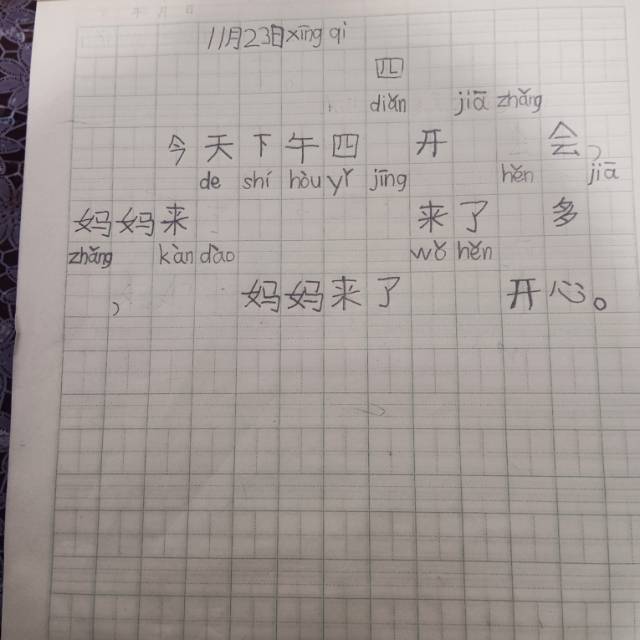 11月23日xīng qi
四
diǎn jiā zhǎng
今天下午四 开 会，
de shí hòu yǐ jīng hěn jiā
妈妈来 来了 多
zhǎng kàn dāo wǒ hěn
， 妈妈来了 开心。